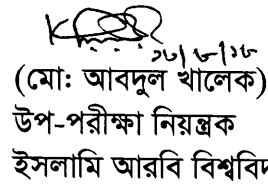 ১৮/৮/১৮
(মো: আবদুল খালেক)
উপ-পরীক্ষা নিয়ন্ত্রক
ইসলামি আরবি